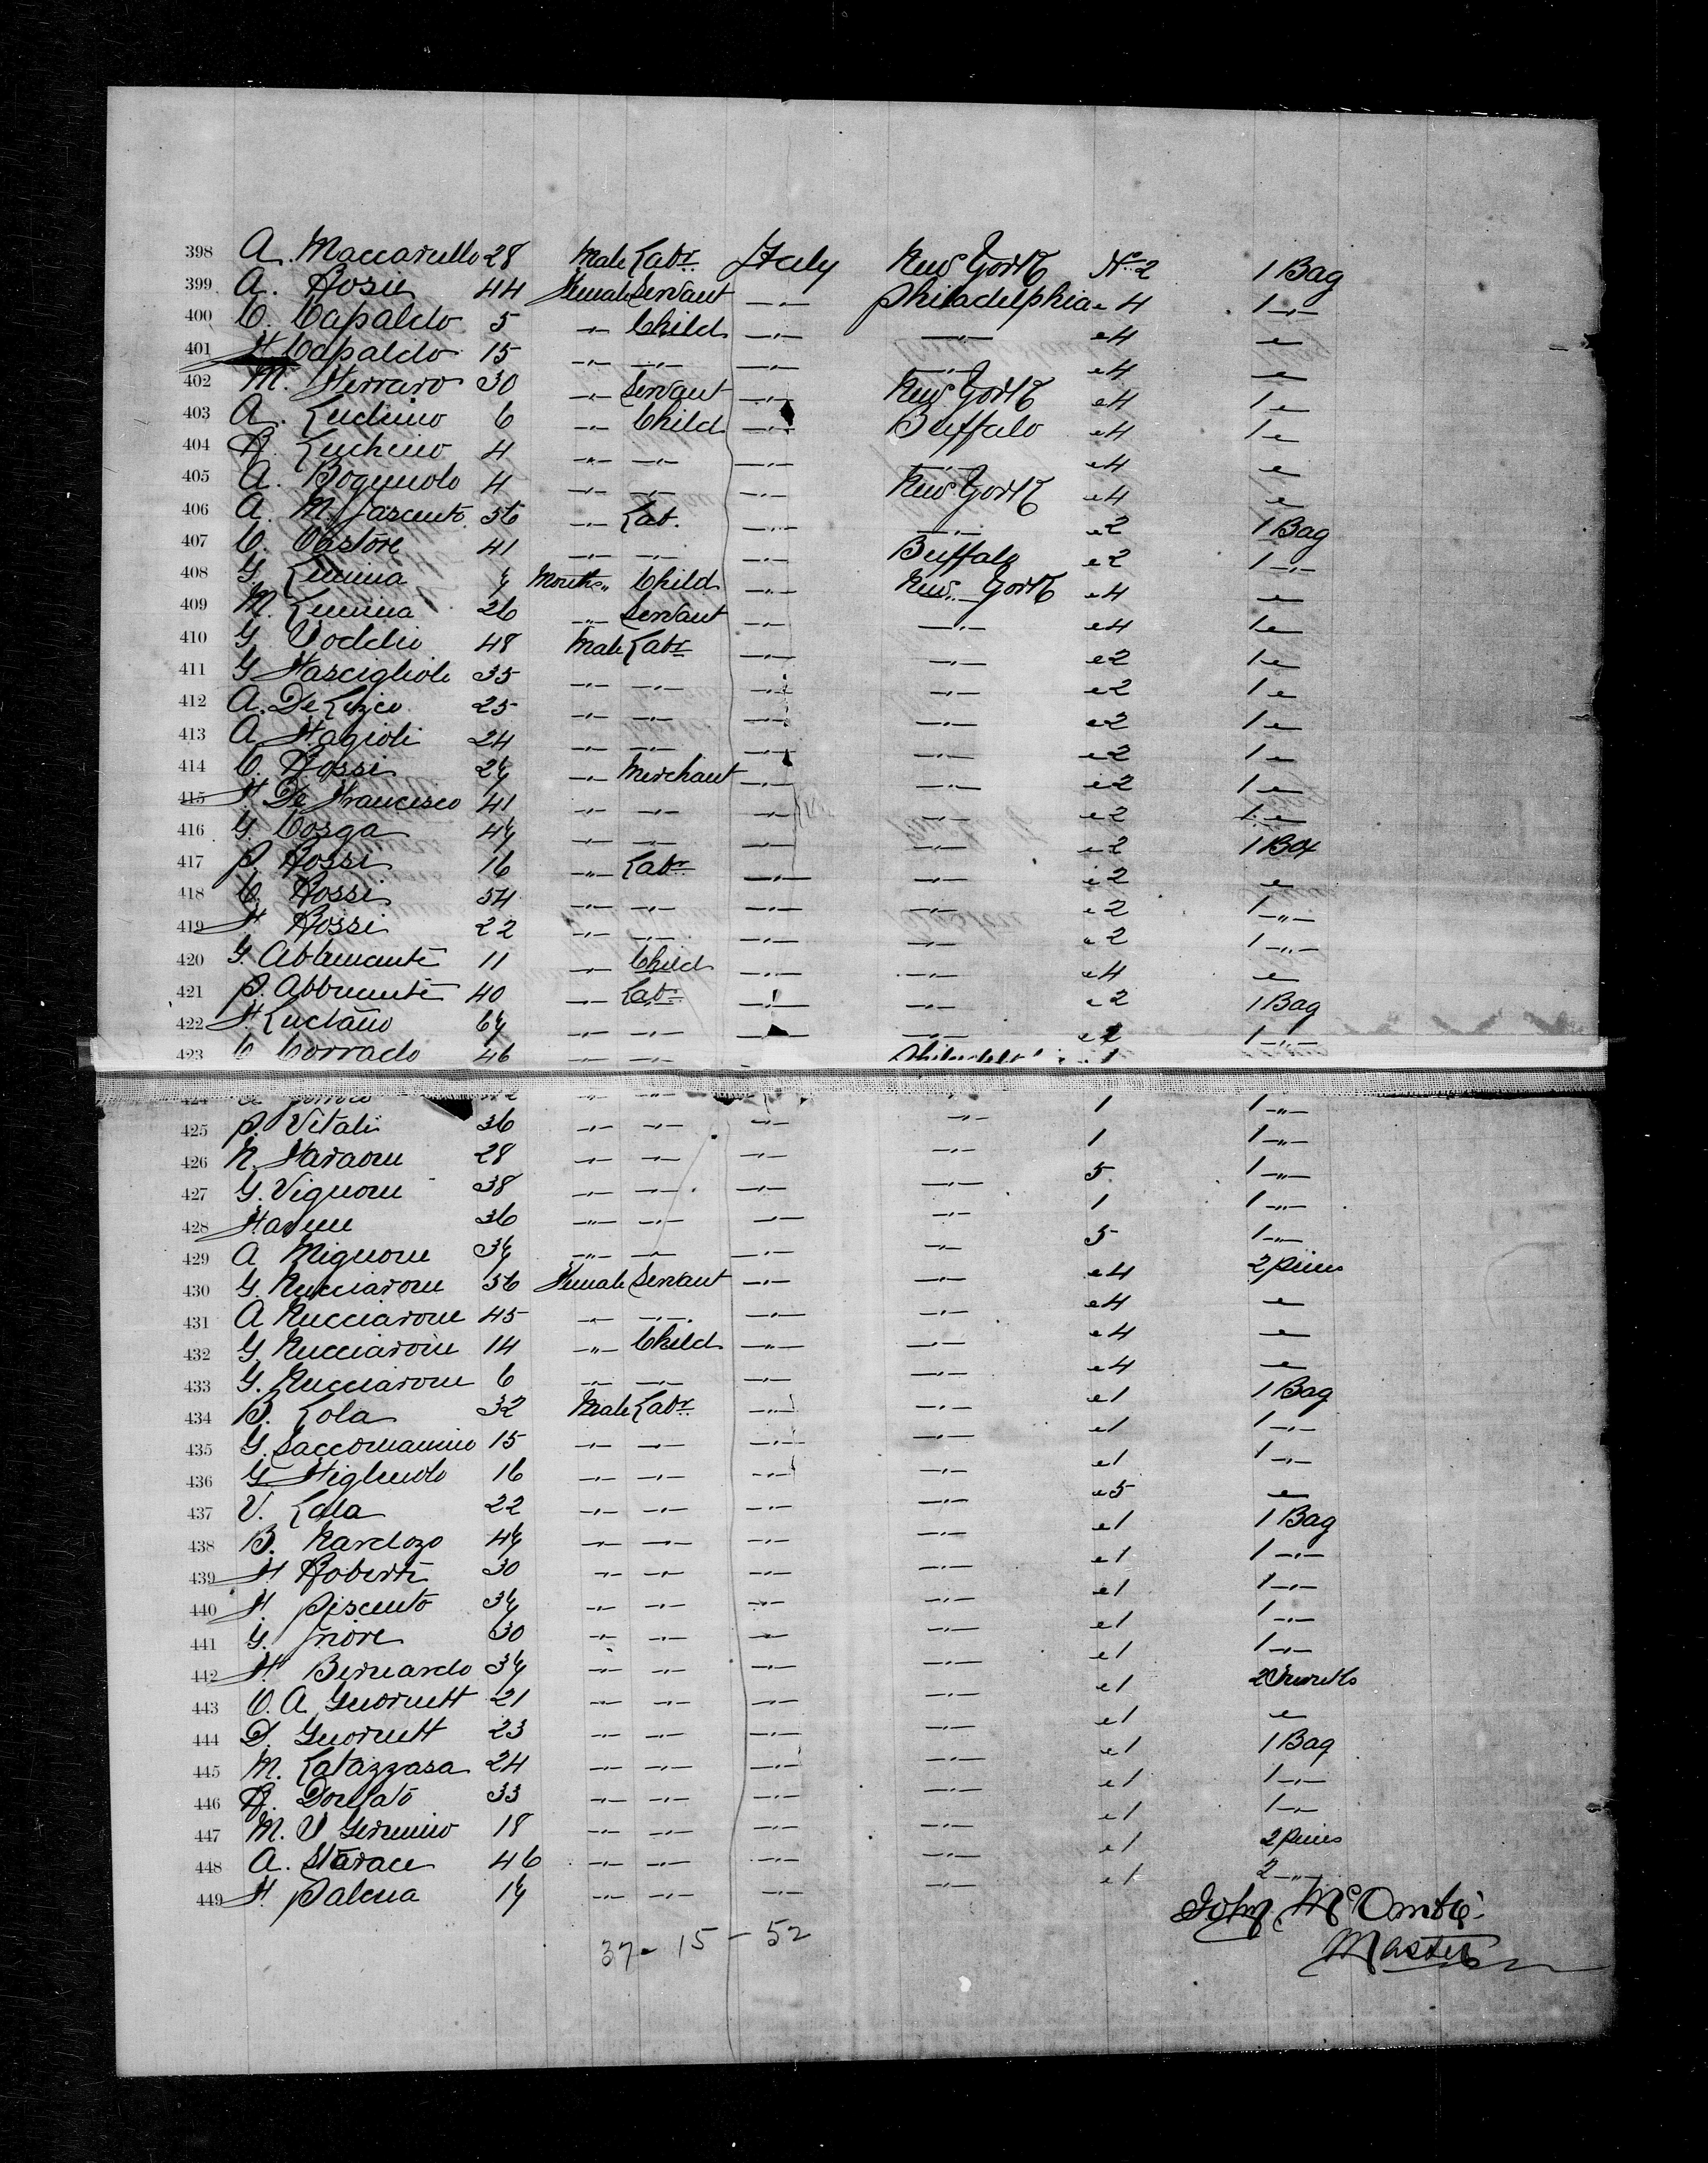 398 A. Maccarullo 28 Male Labr Italy New York No 2 1 Bag
399 A. Rosie 44 Female Servant —"— Philadelphia " 4 1 —"—
400 C. Capaldo 5 —"— Child —"— —"— " 4 "
401 F. Capaldo 15 —"— —"— —"— —"— " 4 "
402 M. Ferraro 30 —"— Servant —"— New York " 4 1 "
403 A. Luchino 6 —"— Child —"— Buffalo " 4 1 "
404 R. Luchino 4 —"— —"— —"— —"— " 4 "
405 A. 4 —"— —"— —"— New York " 4 "
406 A. M. 56 —"— Lab. —"— —"— " 2 1 Bag
407 C. Castore 41 —"— —"— —"— Buffalo " 2 1 —"—
408 G. Lemma 7 Months " Child —"— New York " 4 "
409 M. Lemma 26 —"— Servant —"— —"— " 4 1 "
410 G. Voddio 48 Male Labr —"— —"— " 2 1 "
411 G Fasciglioli 35 —"— —"— —"— —"— " 2 1 "
412 A. De 25 —"— —"— —"— —"— " 2 1 "
413 A. Fagioli 24 —"— —"— —"— —"— " 2 1 "
414 C. Rossi 27 —"— Merchant —"— —"— " 2 1 "
415 F. De Francesco 41 —"— —"— —"— —"— " 2 1 "
416 G. Cosga 47 —"— —"— —"— —"— " 2 1 Box
417 P. Rossi 16 —"— Labr —"— —"— " 2 "
418 C. Rossi 54 —"— —"— —"— —"— " 2 1 —"—
419 F. Rossi 22 —"— —"— —"— —"— " 2 1 —"—
420 G. Abbruanti 11 —"— Child —"— —"— " 4 "
421 P. Abbruanti 40 —"— Labr —"— —"— " 2 1 Bag
422 F. Luciano 67 —"— —"— —"— —"— " 1 —"—
423 C Corrado 46 —"— —"—
424 —"— —"— 1 1 —"—
425 P. Vitali 36 —"— —"— —"— —"— 1 1 —"—
426 N. Faraone 28 —"— —"— —"— —"— 5 1 —"—
427 G. Vignone 38 —"— —"— —"— —"— 1 1 —"—
428 36 —"— —"— —"— —"— 5 1 —"—
429 A Mignone 37 —"— —"— —"— —"—
430 G. Nucciarone 56 Female Servant —"— —"— " 4 2 Pieces
431 A Nucciarone 45 —"— —"— —"— —"— " 4 "
432 G Nucciarone 14 —"— Child —"— —"— " 4 "
433 G. Nucciarone 6 —"— —"— —"— —"— " 4 "
434 B. Lola 32 Male Labr —"— —"— " 1 1 Bag
435 G. Saccomanino 15 —"— —"— —"— —"— " 1 1 —"—
436 G 16 —"— —"— —"— —"— " 1 1 —"—
437 V. Lola 22 —"— —"— —"— —"— " 5 "
438 B. Nardozo 47 —"— —"— —"— —"— " 1 1 Bag
439 F. Roberti 30 —"— —"— —"— —"— " 1 1 —"—
440 F. Piscento 37 —"— —"— —"— —"— " 1 1 —"—
441 G. 30 —"— —"— —"— —"— " 1 1 —"—
442 F. Bernardo 37 —"— —"— —"— —"— " 1 1 —"—
443 C. A. Guorutt 21 —"— —"— —"— —"— " 1 2 Trunks
444 D. Guorutt 23 —"— —"— —"— —"— " 1 "
445 M. Latazzasa 24 —"— —"— —"— —"— " 1 1 Bag
446 R. Donato 33 —"— —"— —"— —"— " 1 1 —"—
447 M. V Germino 18 —"— —"— —"— —"— " 1 1 —"—
448 A. Starace 46 —"— —"— —"— —"— " 1 2 Pieces
449 F. Palma 17 —"— —"— —"— —"— " 1 2 —"—
37 - 15 - 52
John McOmbie
Master